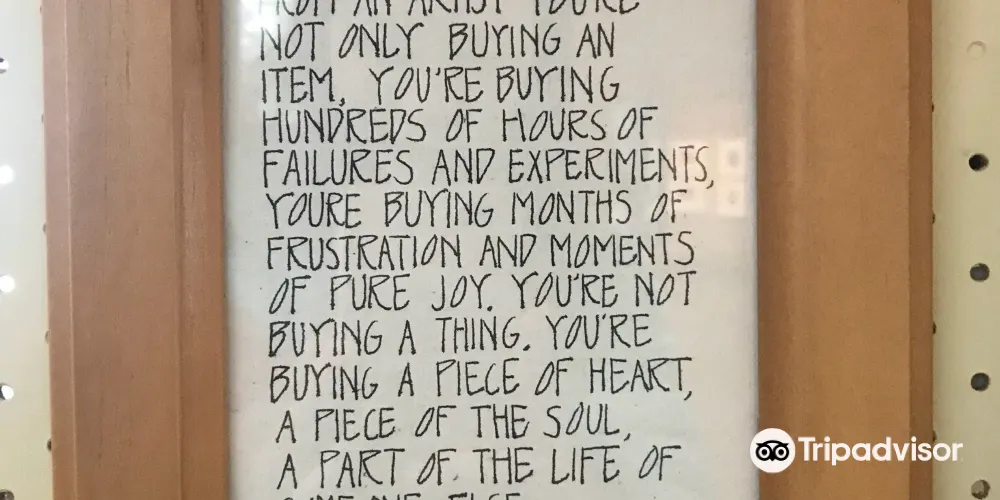 FROM AN ARTIST YOU'RE
NOT ONLY BUYING AN
ITEM, YOU'RE BUYING
HUNDREDS OF HOURS OF
FAILURES AND EXPERIMENTS,
YOURE BUYING MONTHS OF
FRUSTRATION AND MOMENTS
OF PURE JOY. YOU'RE NOT
BUYING A THING. YOU'RE
BUYING A PIECE OF HEART,
A PIECE OF THE SOUL,
A PART OF THE LIFE OF
SOMEONE ELSE
Tripadvisor